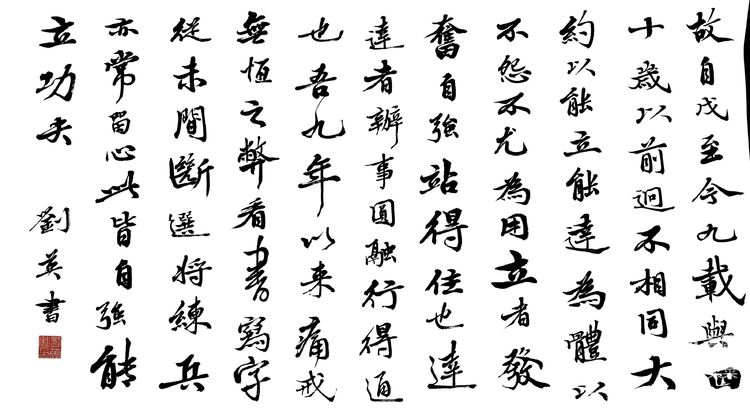 故自戊至今九載與四
十歲以前迥不相同大
約以能立能達為體以
不怨不尤為用立者發
奮自強站得住也達
達者辦事圓融行得通
也吾九年以来痛戒
無恆之弊看書寫字
從未間斷選将練兵
亦常留心此皆自強能
立功夫
劉英書